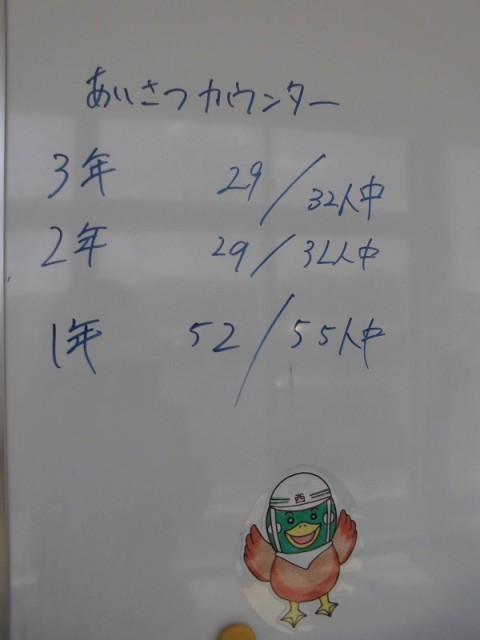 あいさつカウンター
3年 29/32人中
2年 29/31人中
1年 52/55人中
西